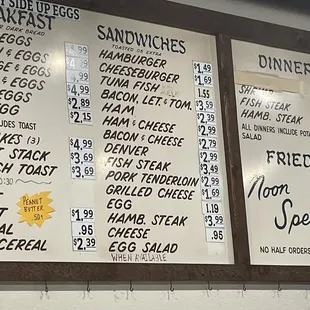 SIDE UP EGGS
AKFAST
DARK BREAD
EGGS
& EGGS
& EGGS
EGGS
& EGGS
EGGS
UDES TOAST
KES (3)
T STACK
SH TOAST
0:30
PEANUT
BUTTER .50¢
CEREAL
.99
4.99
4.99
$2.89
$2.15
$4.99
$3.69
$3.69
$1.99
.95
$2.39
SANDWICHES
TOASTED 05 EXTRA
HAMBURGER $1.49
CHEESEBURGER $1.69
TUNA FISH 1.55
BACON, LET & TOM.
HAM
HAM & CHEESE
BACON & CHEESE
DENVER
FISH STEAK
PORK TENDERLOIN
GRILLED CHEESE
EGG 1.19
HAMB. STEAK
CHEESE .95
EGG SALAD
WHEN AVAILABLE
DINNER
FISH STEAK
HAMB. STEAK
ALL DINNERS INCLUDE
SALAD
FRIED
Noon
Spe
NO HALF ORDERS